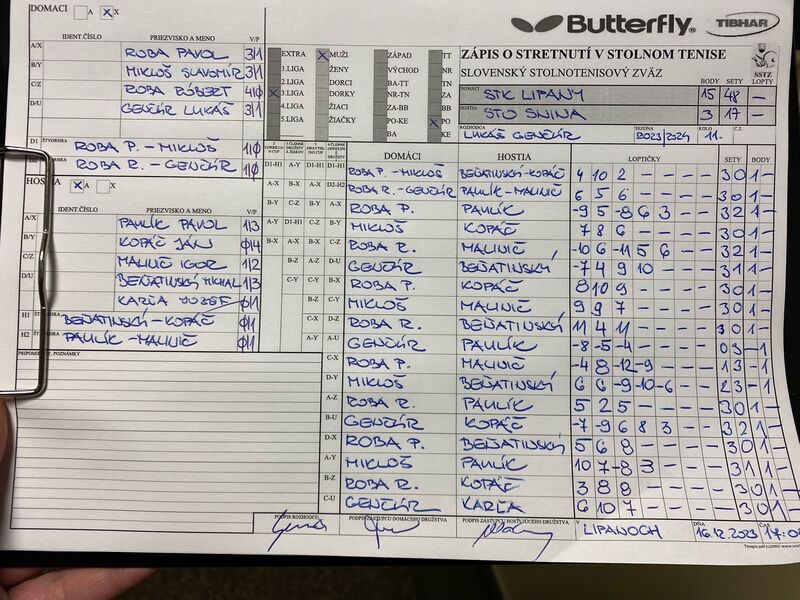 DOMACI A X
Butterfly TIBHAR
IDENT.ČÍSLO PRIEZVISKO A MENO V/P
ZÁPIS O STRETNUTÍ V STOLNOM TENISE
SLOVENSKÝ STOLNOTENISOVÝ ZVÄZ SSTZ
A/X ROBA PAVOL 3/1
B/Y MIKLOŠ SLAVOMÍR 3/1
C/Z ROBA RÓBERT 4/0
D/U GENČÚR LUKÁŠ 3/1
EXTRA MUŽI ZÁPAD TT
1.LIGA ŽENY VÝCHOD NR
2.LIGA DORCI BA-TT TN
3.LIGA DORKY NR-TN ZA
4.LIGA ŽIACI ZA-BB BB
5.LIGA ŽIAČKY PO-KE PO
BA KE
BODY SETY
DOMÁCI STK LIPANY 15 48 -
HOSTIA STO SNINA 3 17 -
ROZHODCA LUKÁŠ GENČÚR SEZÓNA 2023/2024 KOLO 11. Č.Z.
D1 ŠTVORHRA ROBA P. - MIKLOŠ 1/0
D2 ROBA R. - GENČÚR 1/0
HOSTIA X A X
IDENT.ČÍSLO PRIEZVISKO A MENO V/P
A/X PAULÍK PAVOL 1/3
B/Y KOPÁČ JÁN 0/4
C/Z MALINIČ IGOR 1/2
D/U BEŇATINSKÝ MICHAL 1/3
KARĽA JOZEF 0/1
H1 BEŇATINSKÝ - KOPÁČ 0/1
H2 PAULÍK - MALINIČ 0/1
PRIPOMIENKY, POZNÁMKY
DOMÁCI HOSTIA LOPTIČKY SETY BODY
D1-H1 A-Y A-Y D1-H1 ROBA P - MIKLOŠ BEŇATINSKÝ-KOPÁČ 4 10 2 - - - - 3 0 1 -
A-X B-X A-X D2-H2 ROBA R. - GENČÚR PAULÍK-MALINIČ 6 5 6 - - - - 3 0 1 -
ROBA P. PAULÍK -9 5 -8 6 3 - - 3 2 1 -
MIKLOŠ KOPÁČ 7 8 6 - - - - 3 0 1 -
ROBA R. MALINIČ -10 6 -11 5 6 - - 3 2 1 -
GENČÚR BEŇATINSKÝ -7 4 9 10 - - - 3 1 1 -
ROBA P. KOPÁČ 8 10 9 - - - - 3 0 1 -
MIKLOŠ MALINIČ 9 9 7 - - - - 3 0 1 -
C-X D-Z ROBA R. BEŇATINSKÝ 11 4 11 - - - - 3 0 1 -
A-Y A-U GENČÚR PAULÍK -8 -5 -4 - - - - 0 3 - 1
C-X ROBA P. MALINIČ -4 8 -12 -9 - - - 1 3 - 1
D-Y MIKLOŠ BEŇATINSKÝ 6 6 -9 -10 -6 - - 2 3 - 1
A-Z ROBA R. PAULÍK 5 2 5 - - - - 3 0 1 -
B-U GENČÚR KOPÁČ -7 -9 6 8 3 - - 3 2 1 -
D-X ROBA P. BEŇATINSKÝ 5 6 8 - - - - 3 0 1 -
A-Y MIKLOŠ PAULÍK 10 7 -8 3 - - - 3 1 1 -
B-Z ROBA R. KOPÁČ 3 8 8 - - - - 3 0 1 -
C-U GENČÚR KARĽA 6 10 7 - - - - 3 0 1 -
PODPIS ROZHODCU PODPIS ZÁSTUPCU DOMÁCEHO DRUŽSTVA PODPIS ZÁSTUPCU HOSŤUJÚCEHO DRUŽSTVA V LIPANOCH DŇA 16.12.2023 ČAS